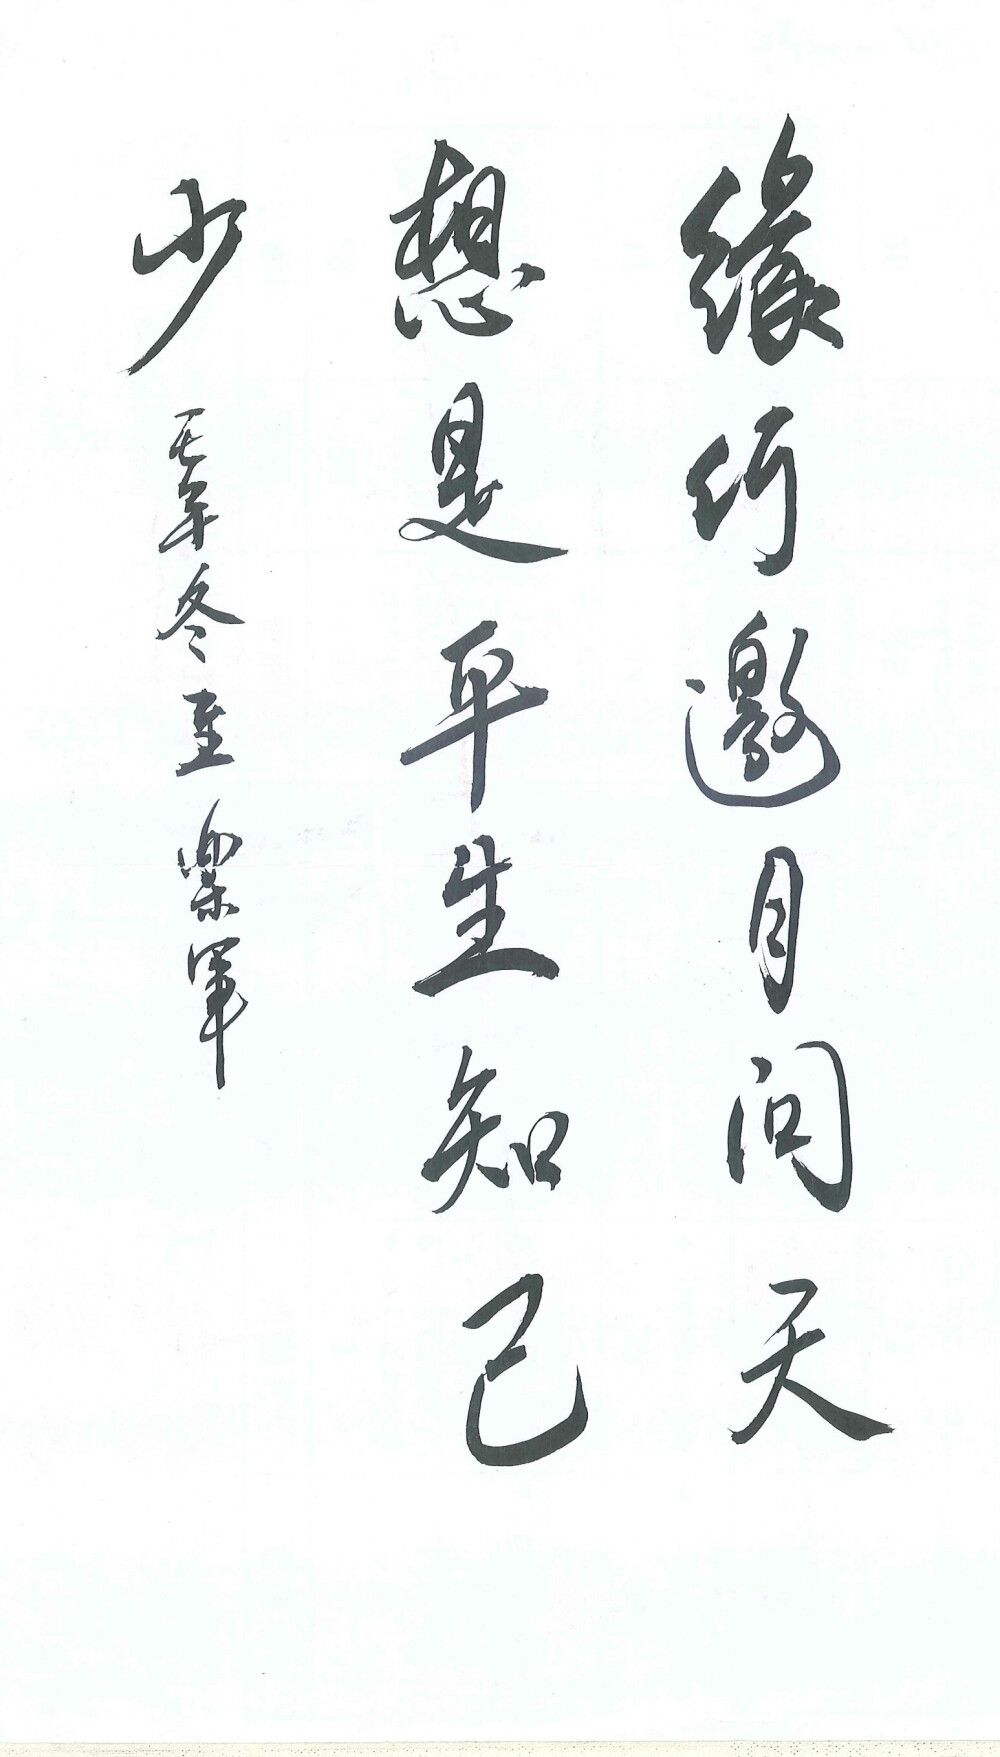 缘何邀月问天
想是平生知己
少 冬至 乐军